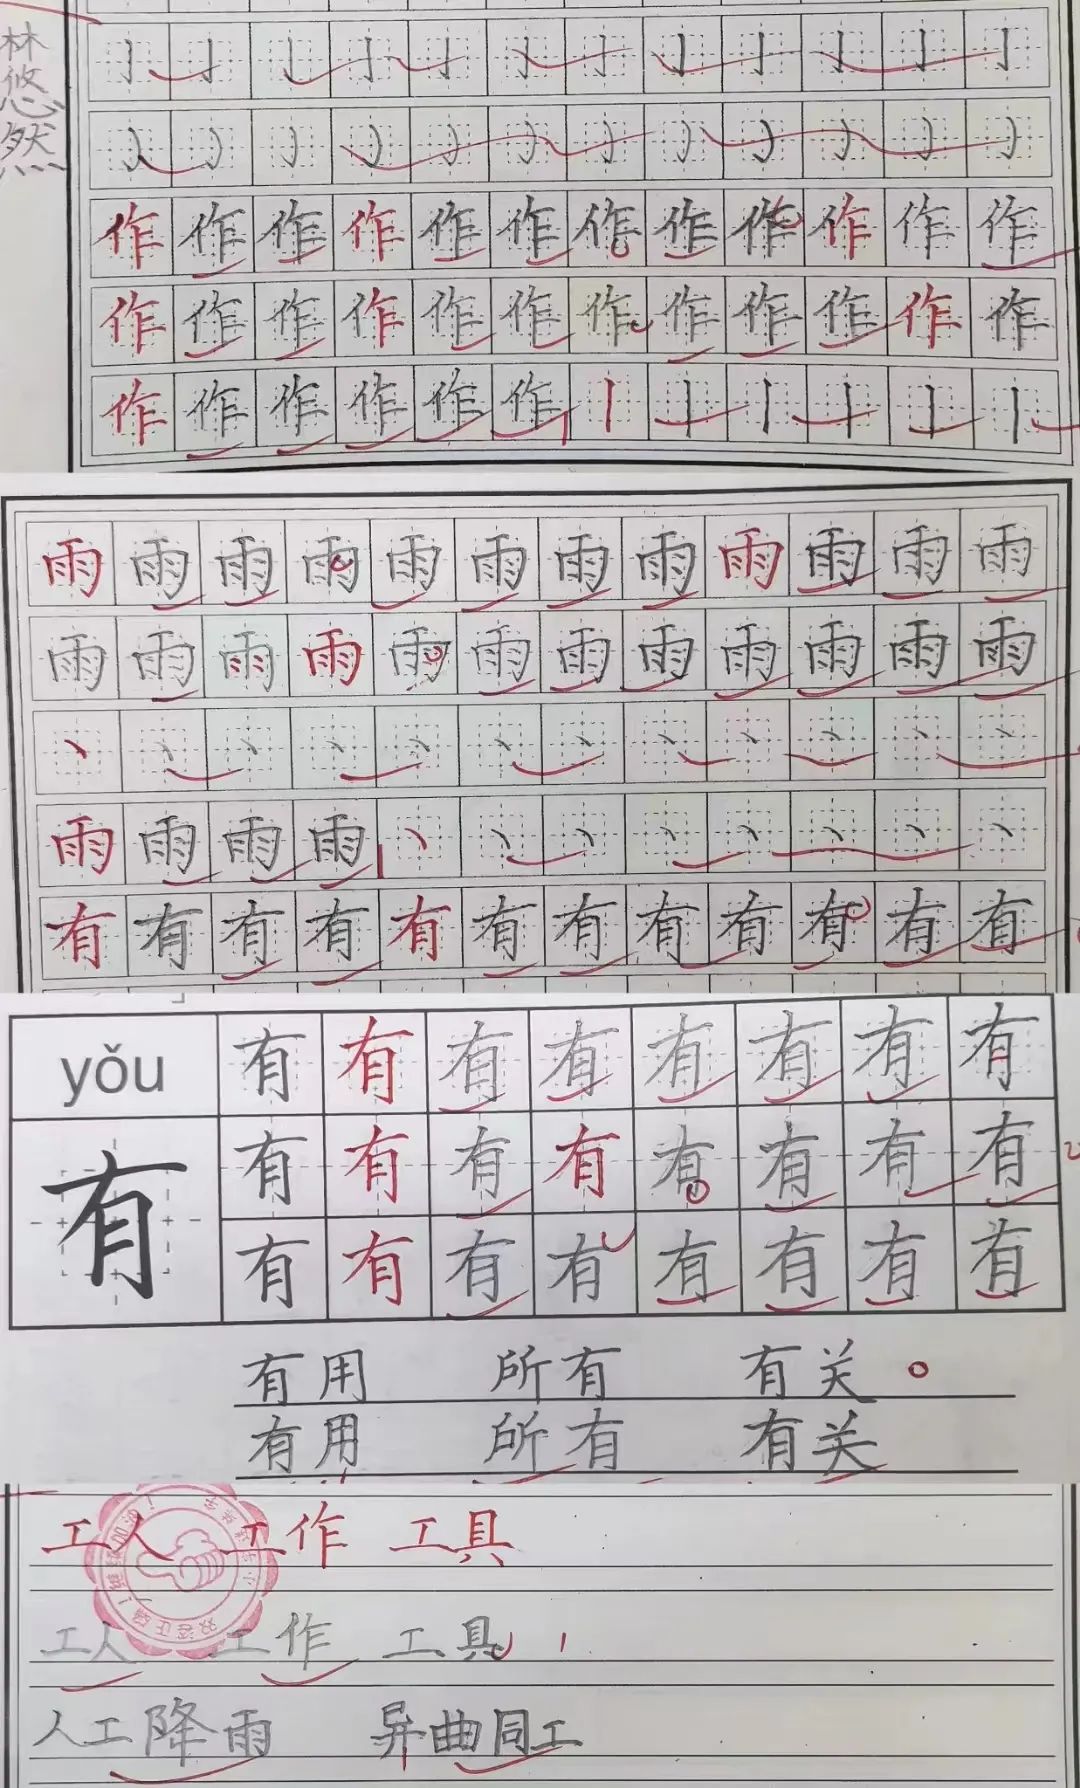 林悠然
亅亅亅亅亅亅亅亅亅亅亅亅
作作作作作作作作作作作作
作作作作作作作作作作作作
作作作作作作丨丨丨丨丨丨
雨雨雨雨雨雨雨雨雨雨雨雨
雨雨雨雨雨雨雨雨雨雨雨雨
丶丶丶丶丶丶丶丶丶丶丶丶
雨雨雨雨丶丶丶丶丶丶丶丶
有有有有有有有有有有有有
yǒu 有有有有有有有有
有 有有有有有有有有
有有有有有有有有
有用 所有 有关
有用 所有 有关
工人 工作 工具
工人 工作 工具
人工降雨 异曲同工